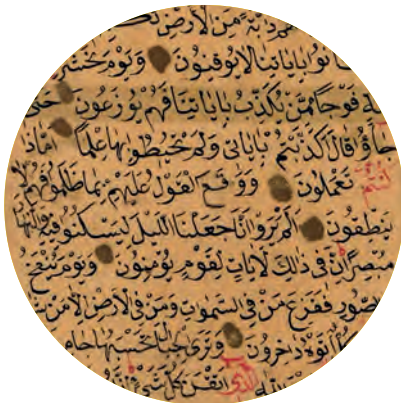 دَابَّةً مِنَ الْأَرْضِ
كَانُوا بِآيَاتِنَا لَا يُوقِنُونَ وَيَوْمَ نَحْشُرُ
فَوْجًا مِمَّنْ يُكَذِّبُ بِآيَاتِنَا فَهُمْ يُوزَعُونَ حَتَّى
جَاؤُ قَالَ أَكَذَّبْتُمْ بِآيَاتِي وَلَمْ تُحِيطُوا بِهَا عِلْمًا أَمَّاذَا
كُنْتُمْ تَعْمَلُونَ وَوَقَعَ الْقَوْلُ عَلَيْهِمْ بِمَا ظَلَمُوا فَهُمْ لَا
يَنْطِقُونَ أَلَمْ يَرَوْا أَنَّا جَعَلْنَا اللَّيْلَ لِيَسْكُنُوا فِيهِ
مُبْصِرًا إِنَّ فِي ذَلِكَ لَآيَاتٍ لِقَوْمٍ يُؤْمِنُونَ وَيَوْمَ يُنْفَخُ
الصُّورِ فَفَزِعَ مَنْ فِي السَّمَوَاتِ وَمَنْ فِي الْأَرْضِ إِلَّا مَنْ
أَتَوْهُ دَاخِرُونَ وَتَرَى الْجِبَالَ تَحْسَبُهَا جَامِ
اللَّهِ الَّذِي أَتْقَنَ كُلَّ شَيْءٍ إِنَّهُ